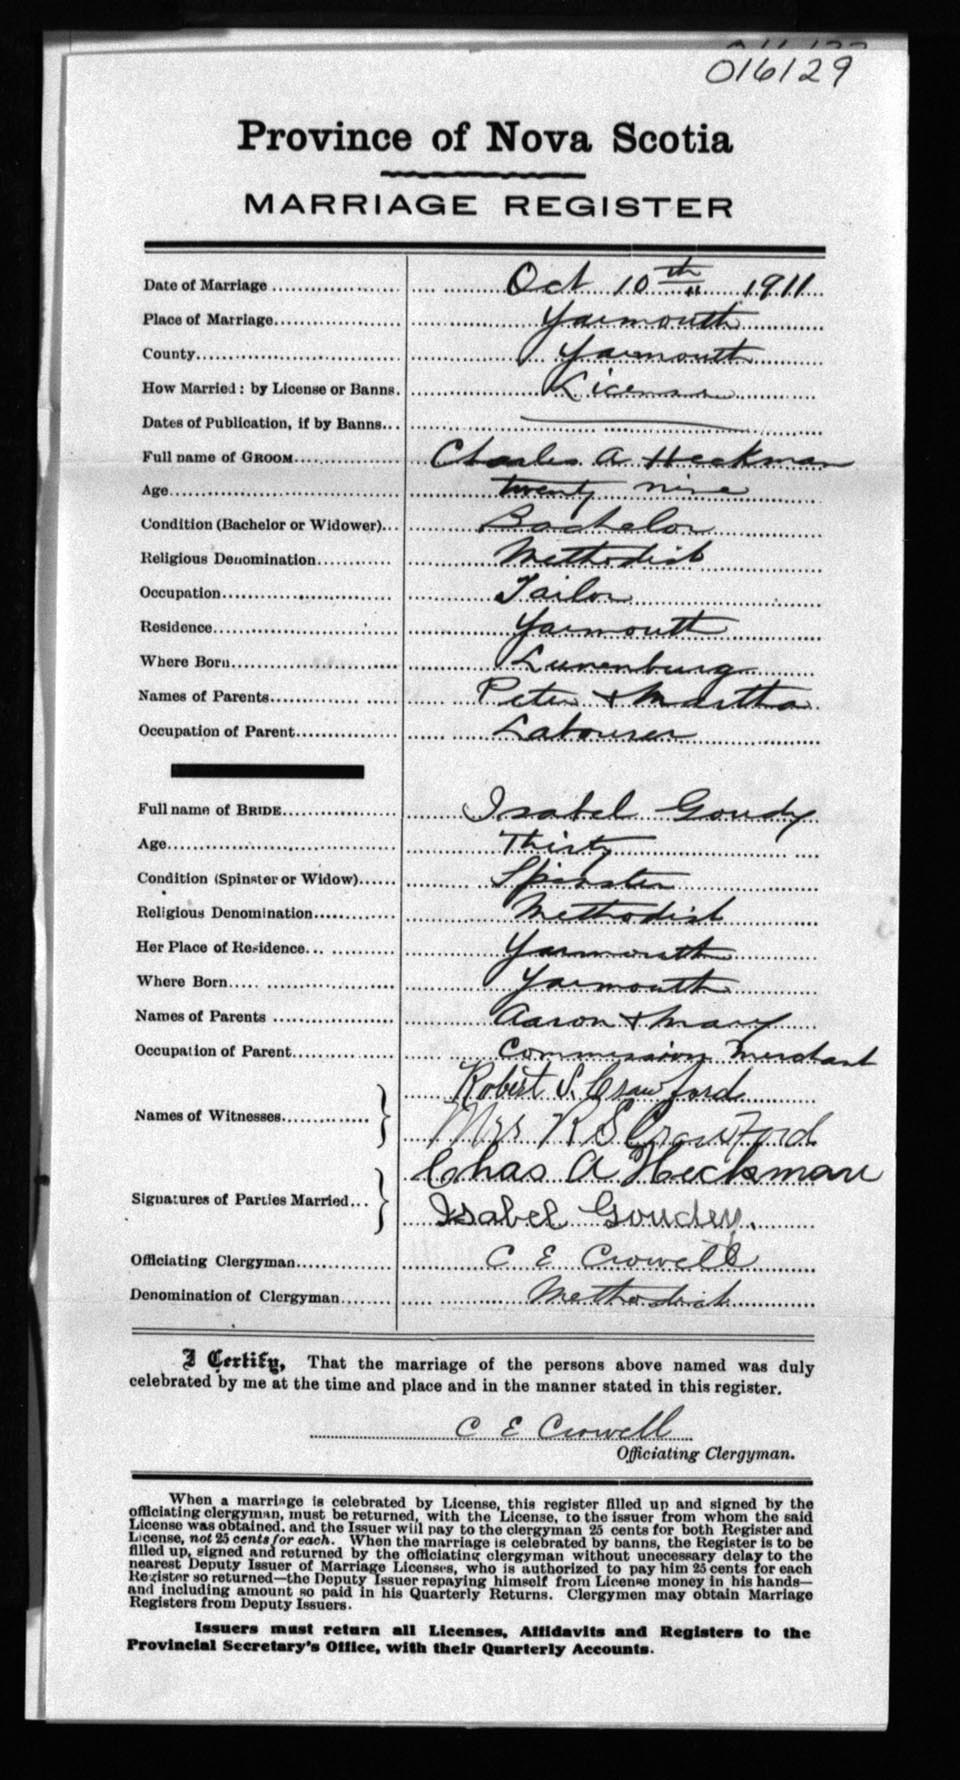 016129
Province of Nova Scotia
MARRIAGE REGISTER
Date of Marriage Oct 10th 1911
Place of Marriage Yarmouth
County Yarmouth
How Married: by License or Banns. License
Dates of Publication, if by Banns
Full name of GROOM Charles A Heckman
Age twenty nine
Condition (Bachelor or Widower) Bachelor
Religious Denomination Methodist
Occupation Tailor
Residence Yarmouth
Where Born Lunenburg
Names of Parents Peter & Martha
Occupation of Parent Labourer
Full name of BRIDE Isabel Goudy
Age Thirty
Condition (Spinster or Widow) Spinster
Religious Denomination Methodist
Her Place of Residence Yarmouth
Where Born Yarmouth
Names of Parents Aaron & Mary
Occupation of Parent Commission Merchant
Robert S. Crawford
Names of Witnesses
Mrs R S Crawford
Chas A Heckman
Signatures of Parties Married
Isabel Goudey.
Officiating Clergyman C E Crowell
Denomination of Clergyman Methodist
I Certify, That the marriage of the persons above named was duly
celebrated by me at the time and place and in the manner stated in this register.
C E Crowell
Officiating Clergyman.
When a marriage is celebrated by License, this register filled up and signed by the
officiating clergyman, must be returned, with the License, to the issuer from whom the said
License was obtained, and the Issuer will pay to the clergyman 25 cents for both Register and
License, not 25 cents for each. When the marriage is celebrated by banns, the Register is to be
filled up, signed and returned by the officiating clergyman without unecessary delay to the
nearest Deputy Issuer of Marriage Licenses, who is authorized to pay him 25 cents for each
Register so returned—the Deputy Issuer repaying himself from License money in his hands—
and including amount so paid in his Quarterly Returns. Clergymen may obtain Marriage
Registers from Deputy Issuers.
Issuers must return all Licenses, Affidavits and Registers to the
Provincial Secretary's Office, with their Quarterly Accounts.